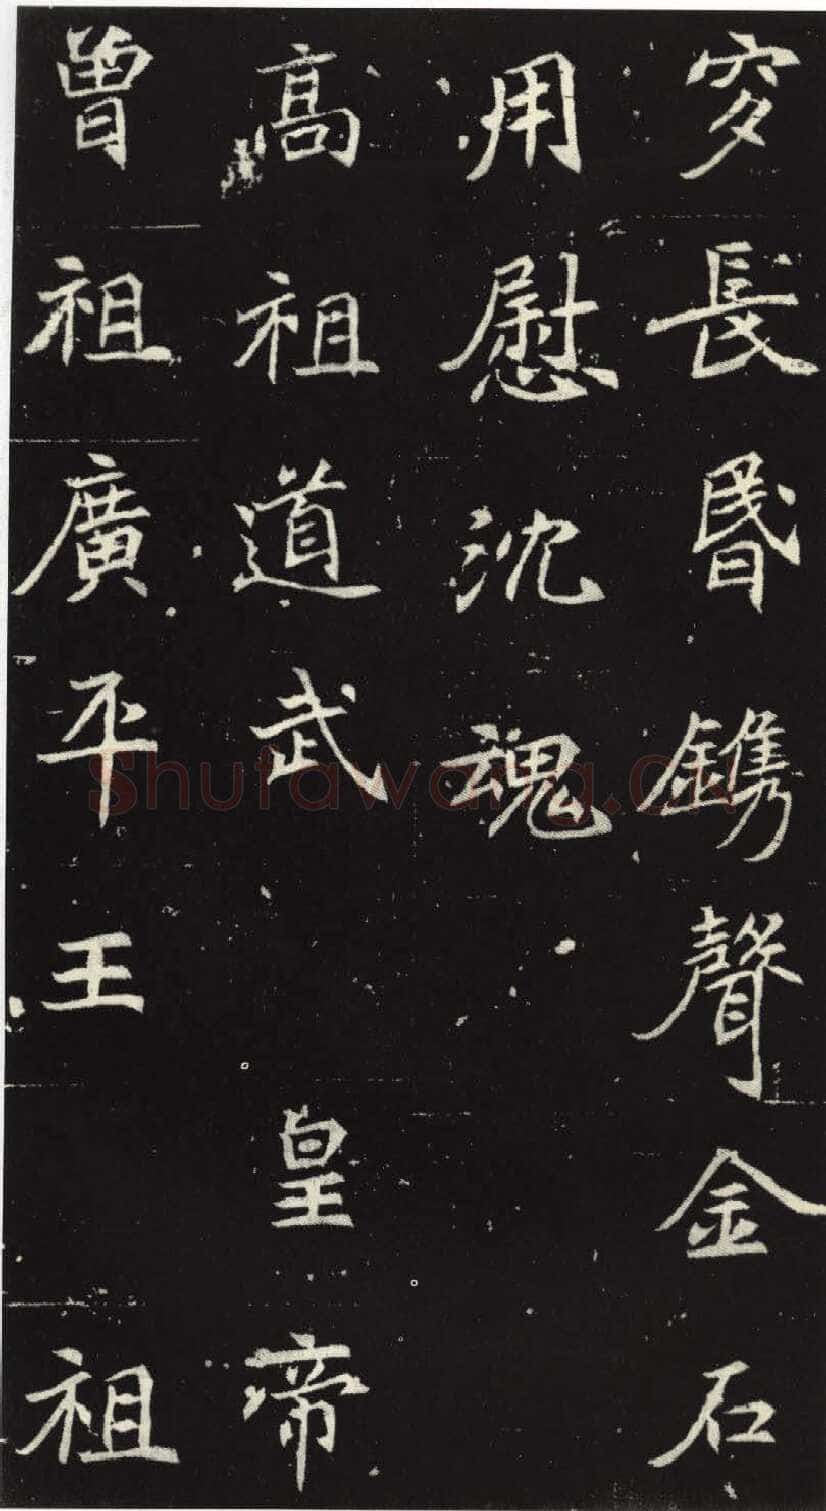 穸長昬鐫聲金石
用慰沈魂
高祖道武皇帝
曾祖廣平王祖
Shufawang.CN